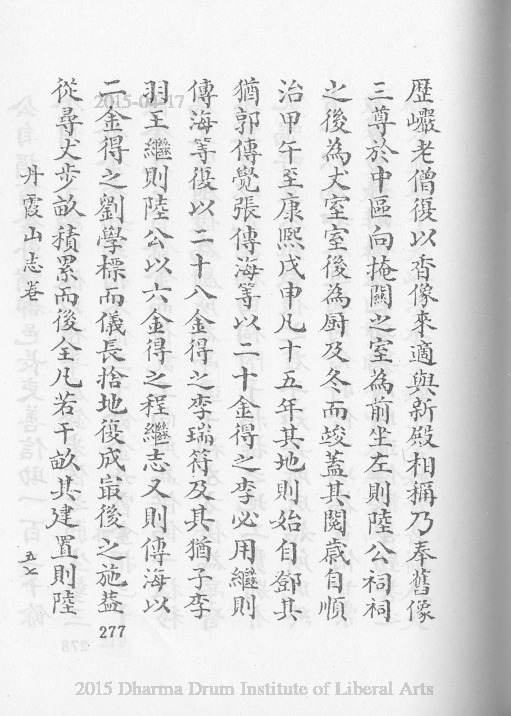 歷巖老僧復以香像來適與新殿相稱乃奉舊像
三尊於中區向掩關之室為前坐左則陸公祠祠
之後為丈室室後為厨及冬而竣蓋其閱歲自順
治甲午至康熙戊申凡十五年其地則始自鄧其
猶郭傳覺張傳海等以二十金得之李必用繼則
傳海等復以二十八金得之李瑞符及其猶子李
羽王繼則陸公以六金得之程繼志又則傳海以
二金得之劉學標而儀長捨地復成最後之施葢
從尋丈步畝積累而後全凡若干畝其建置則陸
丹霞山志卷
五
277
2015-04-17
2015 Dharma Drum Institute of Liberal Arts